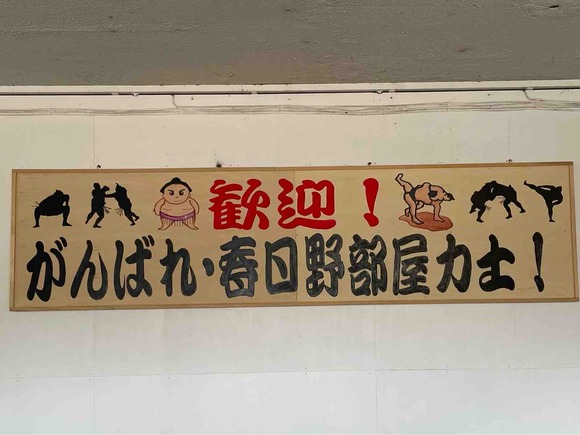 歓迎!
がんばれ、春日野部屋力士!